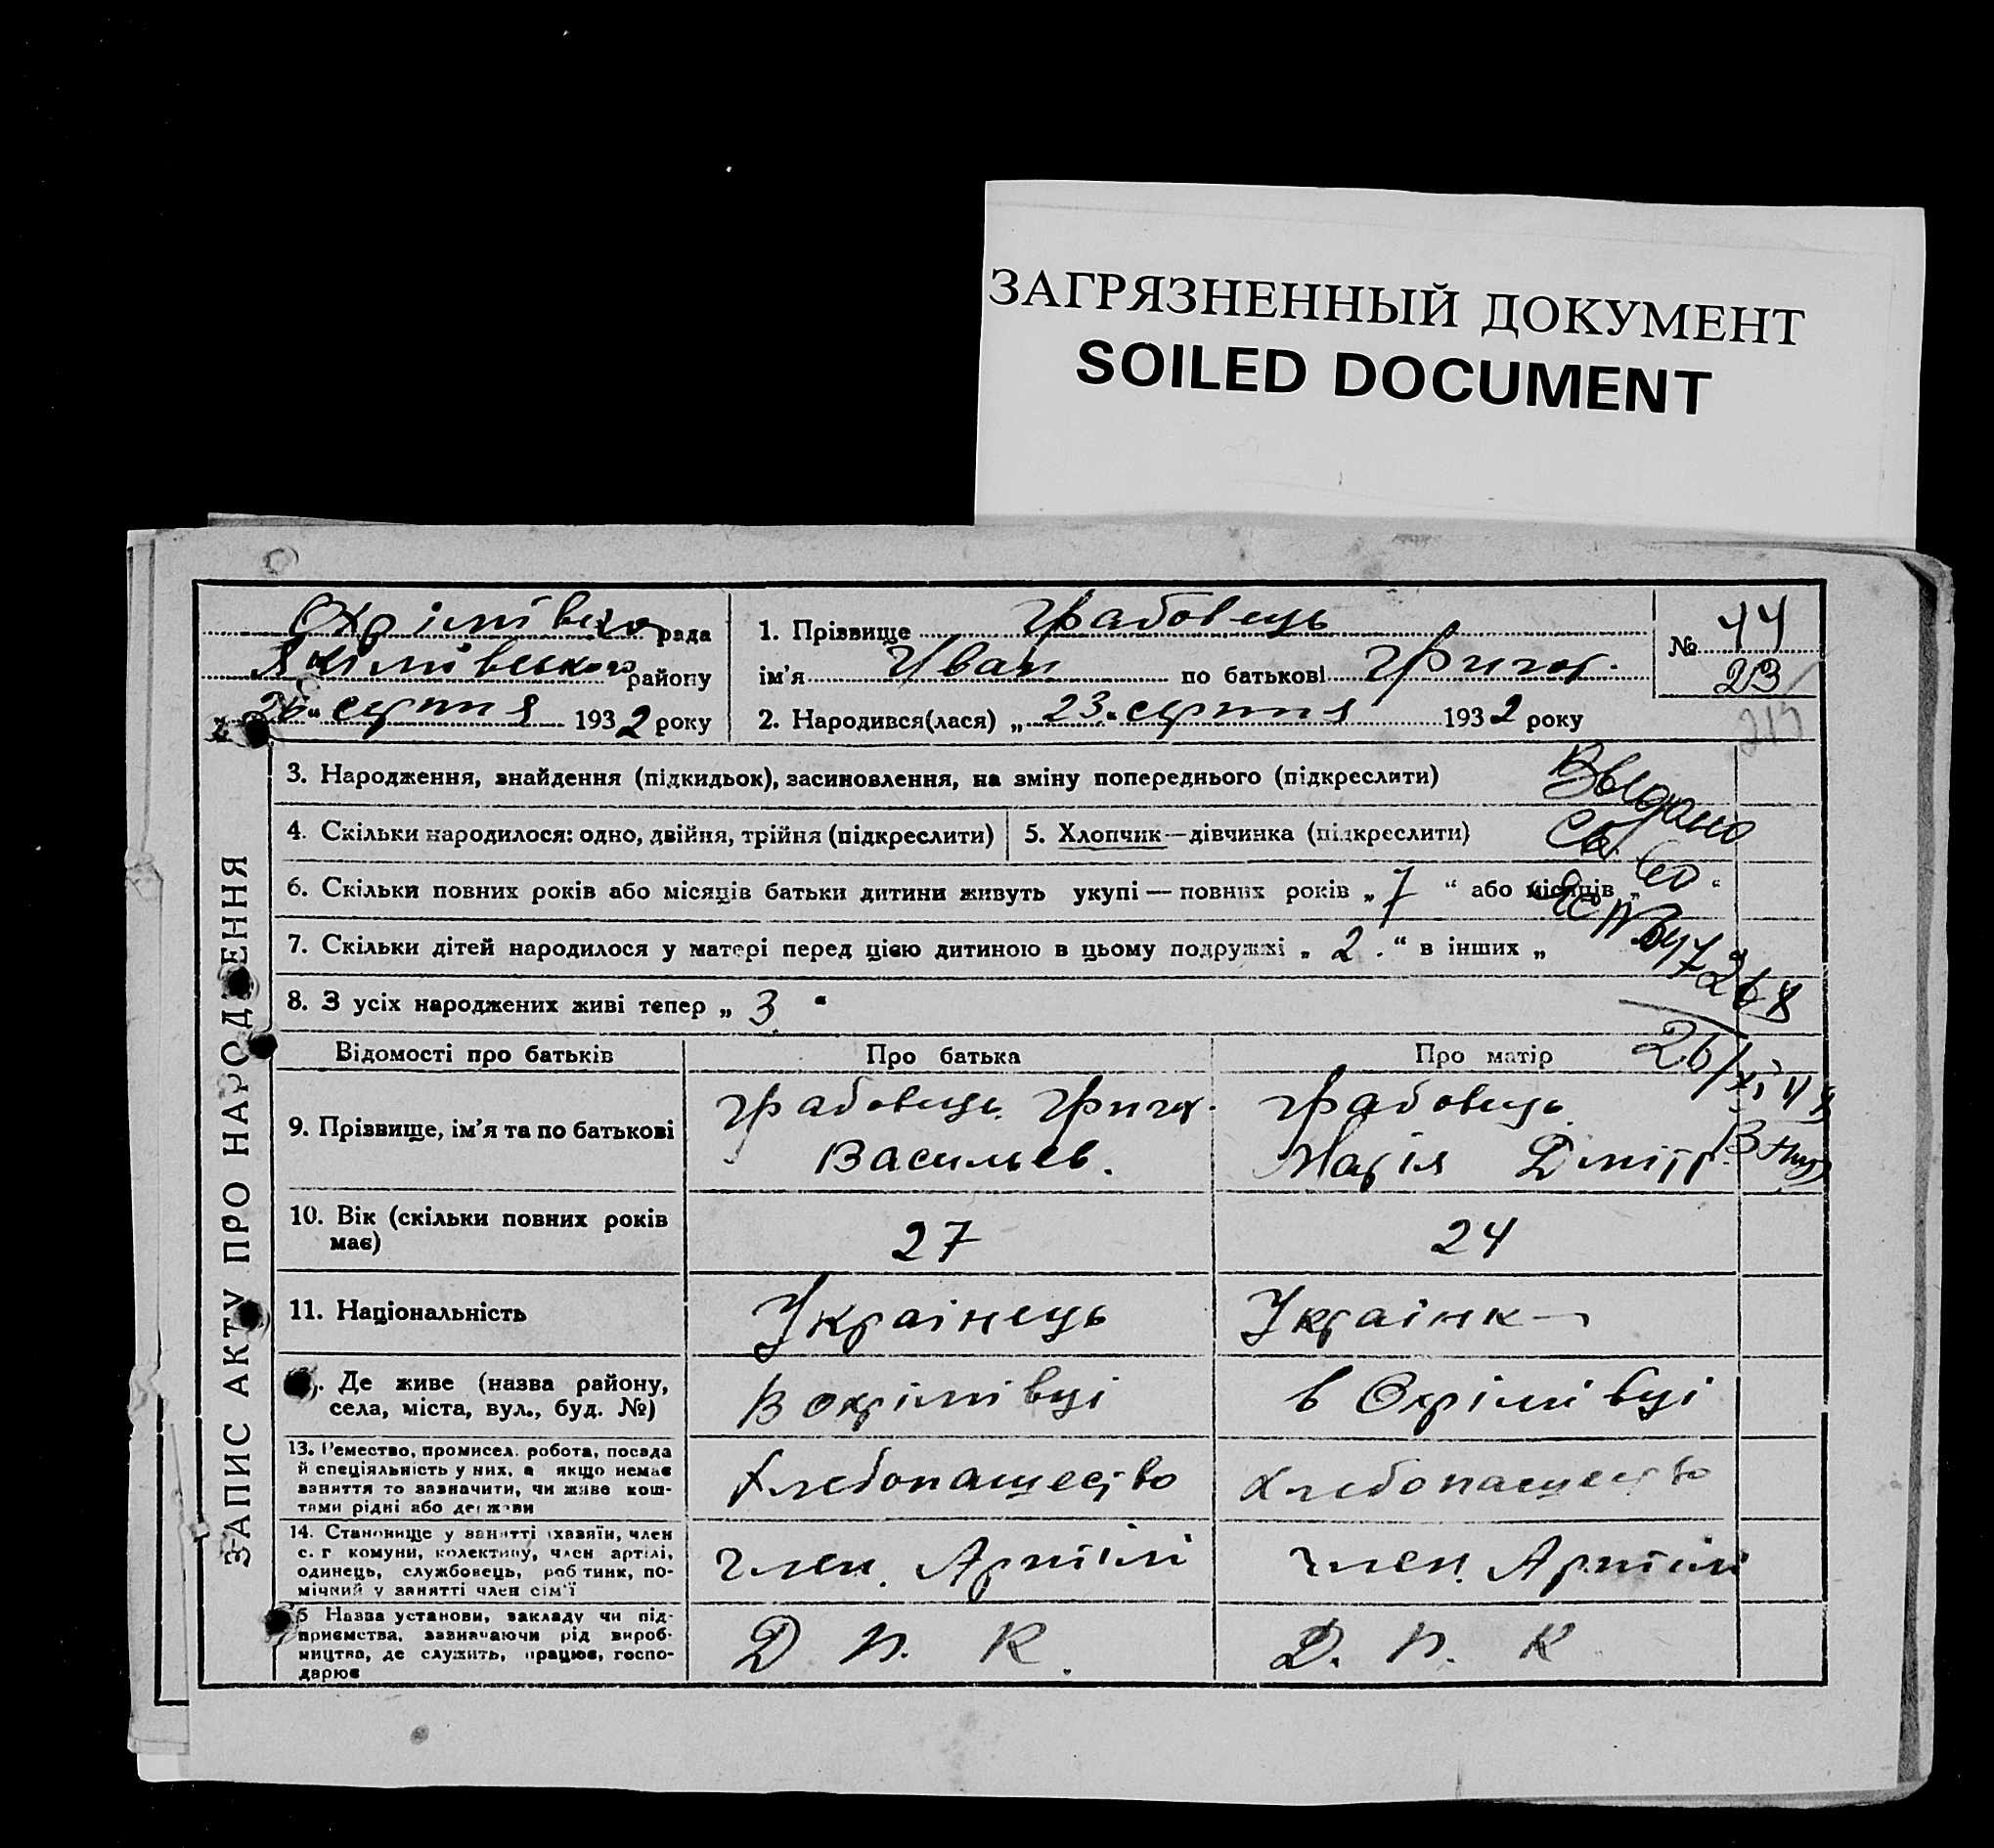 ЗАГРЯЗНЕННЫЙ ДОКУМЕНТ
SOILED DOCUMENT
Охрімівсько рада
Якімівського району
26 "серпня 1932 року
1. Прізвище Грабовець
ім'я Иван по батькові Григор.
2. Народився(лася) „23" серпня 1932 року
№ 44
23
217
ЗАПИС АКТУ ПРО НАРОДЖЕННЯ
3. Народження, знайдення (підкидьок), засиновлення, на зміну попереднього (підкреслити)
4. Скільки народилося: одно, двійня, трійня (підкреслити)
5. Хлопчик—дівчинка (підкреслити)
6. Скільки повних років або місяців батьки дитини живуть укупі — повних років „7 “ або місяців „ “
7. Скільки дітей народилося у матері перед цією дитиною в цьому подружжі „ 2 . “ в інших „
8. З усіх народжених живі тепер „ 3 “
Выдано
Св
26/XI 48
Відомості про батьків
Про батька
Про матір
9. Прізвище, ім'я та по батькові
Грабовець Григор.
Васильев.
Грабовець
Марія Дмітр.
10. Вік (скільки повних років
має)
27
24
11. Національність
Украінець
Украінк
. Де живе (назва району,
села, міста, вул., буд. №)
В Охрімівці
в Охрімівці
13. Ремество, промисел, робота, посада
й спеціяльність у них, а якщо немає
заняття то зазначити, чи живе кош-
тами рідні або держави
Хлебопашество
Хлебопашество
14. Становище у занятті (хазяїн, член
с. г комуни, колективу, член артілі,
одинець, службовець, робітник, по-
мічний у занятті член сім'ї
Член. Артілі
Член. Артілі
5 Назва установи, закладу чи під-
приємства, зазначаючи рід вироб-
ництва, де служить, працює, госпо-
дарює
Д П. К.
Д. П. К